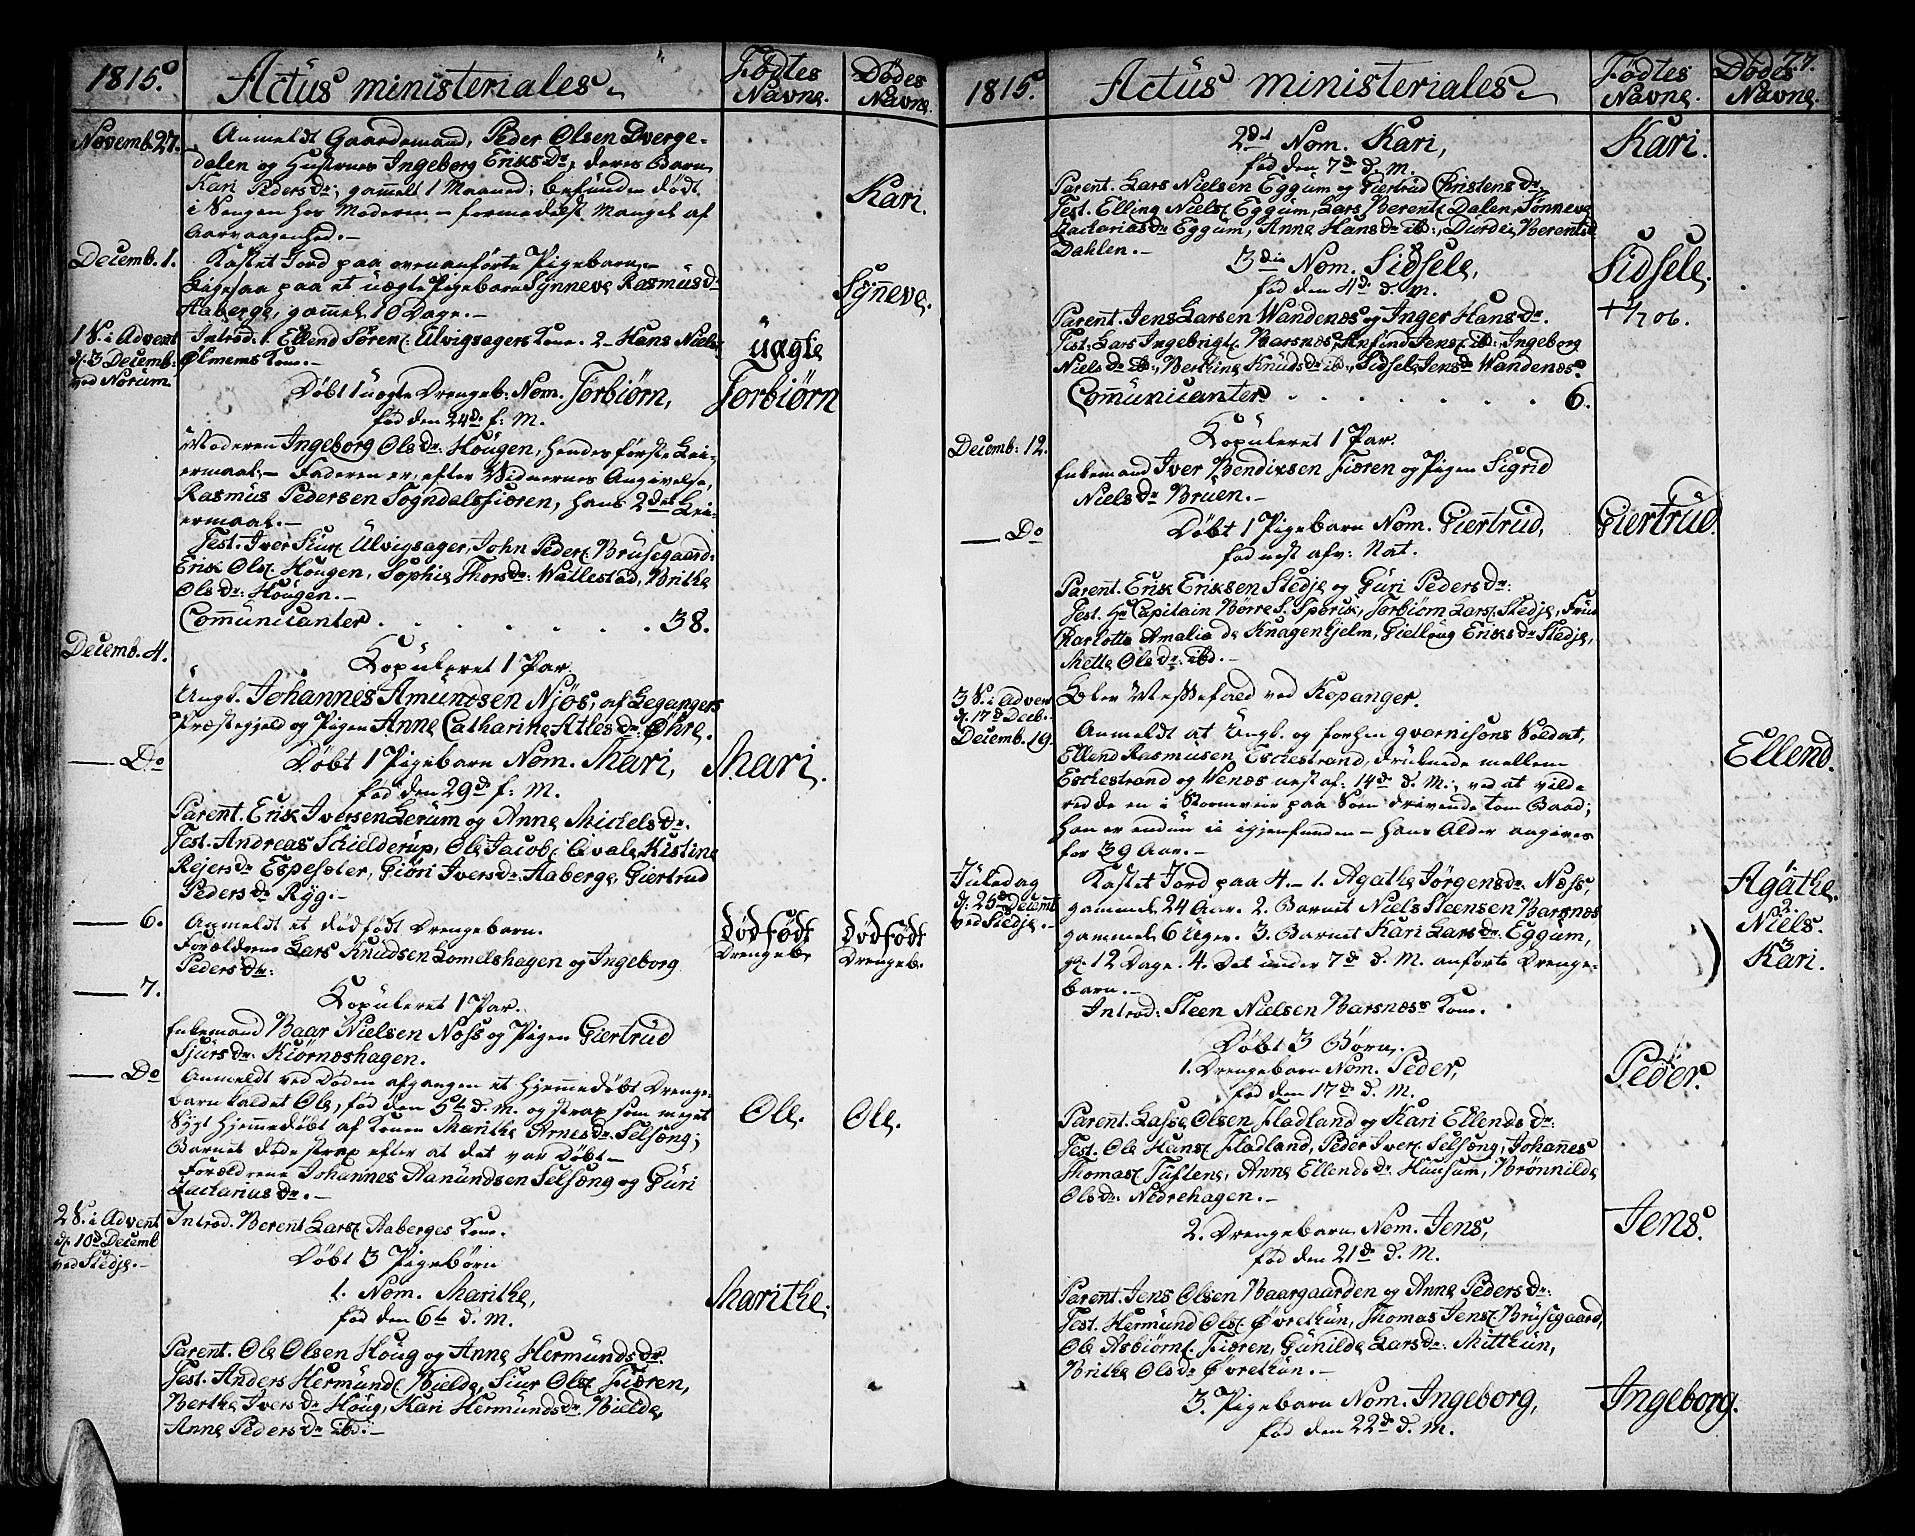 1815.
Actus ministeriales.
Fødtes Navne.
Dødes Navne.
Novemb. 27.
Anmeldt Gaardemand, Peder Olsen Dverge-
dalen og Hustrues Ingeborg Eriks Dr, deres Barn
Kari Peders dr: gamelt 1 Maaned; befunden dødt
i Sengen hos Moderen – formedelst Mangel af
Aarvaagenhed. –
Kari.
Decemb. 1.
Kastet Jord paa ovenanførte Pigebarn –
Ligesaa paa et uægte Pigebarn Synneve Rasmus dr
Aaberge, gammel 10 Dage. –
Synneve.
1 S. i Advent
d. 3 Decemb:
ved Norum
Introd. 1 Ellend Søren. Ulvigsagers Kone. 2 – Hans Niels.
Ølmems Kone. –
Døbt 1 uægte Drengeb: Nom. Torbiørn,
fød den 24d f: M.
uægte
Torbiørn
Moderen Ingeborg Ols dr: Hougen, hendes første Lei-
ermaal. – Faderen er, efter Vidnernes Angivelse,
Rasmus Pedersen Sogndalsfiæren, hans 2det Lei-
ermaal. –
Test. Iver Siur. Ulvigsager, John Peder. Brusegaard:
Erik Ols. Hougen, Sophie Thors dr: Wallestad, Brithe
Ols dr: Hougen. –
Communicanter . . . . . . . 38.
Decemb. 4.
Kopuleret 1 Par.
Ungk. Johannes Amundsen Njøs, af Leganger
Præstegjeld og Pigen Anne Catharine Atles dr Øhre.
— Do
Døbt 1 Pigebarn Nom. Mari,
fød den 29d f: M.
Mari.
Parent. Erik Iversen Lerum og Anne Michels dr.
Test. Andreas Schielderup, Ole Jacob. Qvale, Kistine
Rejers dr Espeseter, Giøri Ivers dr. Aaberge, Giertrud
Peders dr Ryg. –
— 6.
Anmeldt et dødfødt Drengebarn.
Forældrene Lars Knudsen Lomelshagen og Ingeborg
Peders dr:
dødfødt
Drengeb.
dødfødt
Drengeb.
— 7.
Kopuleret 1 Par.
Enkemand Baar Nielsen Noss og Pigen Giertrud
Sjurs dr: Kiørneshagen.
— Do
Anmeldt ved Døden afgangen et hjemmedøbt Drenge-
barn kaldet Ole, fød den 5te d. M. og strax som meget
Sygt hjemmedøbt af Konen Marithe Arnes dr. Selseng;
Barnet døde strax efter at det var døbt –
Forældrene Johannes Aanundsen Selseng og Guri
Zacharias dr. –
Ole.
Ole.
2 S. i Advent
d. 10d Decemb
ved Stedje. –
Introd. Berent Lars. Aaberges Kone.
Døbt 3 Pigebørn
1. Nom. Marithe,
fød den 6te d. M.
Marithe.
Parent. Ole Olsen Houg og Anne Hermunds dr.
Test. Anders Hermund. Bielde, Siur Ols. Fiæren,
Berthe Ivers dr Houg, Kari Hermunds dr. Bielde,
Anne Peders dr ibd. –
1815.
Actus ministeriales.
Fødtes Navne.
Dødes Navne.
77.
2det Nom. Kari,
fød den 7d d. M.
Kari.
Parent. Lars Nielsen Eggum og Giertrud Christens dr
Test. Elling Niels. Eggum, Lars Berent. Dalen, Sønneve
Zacharias dr Eggum, Anne Hans dr ibd:, Durdei Berents dr
Dahlen. –
3die Nom. Sidsele,
fød den 4d d. M.
Sidsele.
+ 1/7 06.
Parent. Jens Larsen Wandenæs og Inger Hans dr.
Test. Lars Ingebrigt. Barsnes, Anfind Jens. ibd: Ingeborg
Niels dr ibd:, Berthine Knuds dr ibd:, Sidsele Jens dr Wandenæs.
Communicanter . . . . . . . 6.
Decemb: 12.
Kopuleret 1 Par.
Enkemand Iver Bendixsen Fiæren og Pigen Sigrid
Niels dr Bruen. –
— Do
Døbt 1 Pigebarn Nom. Giertrud,
fød nest afv: Nat.
Giertrud.
Parent. Erik Eriksen Stedje og Guri Peders dr:
Test. Hr Capitain Børre S. Sporik, Torbiørn Lars. Stedje, Frue
Karlotte Amalia de Knagenhjelm, Giettoug Eriks dr Stedje,
Mette Ols dr: ibd. –
3 S. i Advent
d. 17d Decb. –
Blev Messefald ved Kopanger.
Decemb. 19.
Anmeldt at Ungk. og forhen gvarnisons Soldat,
Ellend Rasmusen Eschestrand, druknede mellem
Eschestrand og Venæs nest af: 14d d. M.; ved at vilde
redde en i Stormveir paa Søen drivende tom Baad;
han er endnu ei igjenfunden – hans Alder angives
for 39 Aar. –
Ellend.
Juledag
d: 25d Decemb
ved Stedje. –
Kastet Jord paa 4. – 1. Agathe Jørgens dr. Næss,
gammel 24 Aar. 2. Barnet Niels Steensen Barsnes
gammel 6 Uger. 3. Barnet Kari Lars dr: Eggum,
gl. 12 Dage. 4. Det under 7d d. M. anførte Drenge-
barn. –
Agathe.
2.
Niels.
3
Kari.
Introd: Steen Nielsen Barsnes's Kone.
Døbt 3 Børn.
1. Drengebarn Nom. Peder,
fød den 17d d. M.
Peder.
Parent. Lasse Olsen Fladland og Kari Ellends dr:
Test. Ole Hans. Fladland, Peder Iver. Selseng, Johannes
Thomas. Tuftene, Anne Ellends dr: Huusum, Brønnilde
Ols dr: Nedrehagen. –
2. Drengebarn Nom. Jens,
fød den 21d d. M.
Jens.
Parent. Jens Olsen Baargaarden og Anne Peders dr:
Test. Hermund Ols. Øvrethun, Thomas Jens. Brusegaard,
Ole Asbiørn. Fiæren, Gunilde Lars dr: Mitthun,
Brithe Ols dr Øvrethun. –
3. Pigebarn Nom. Ingeborg,
fød den 22d d. M.
Ingeborg.